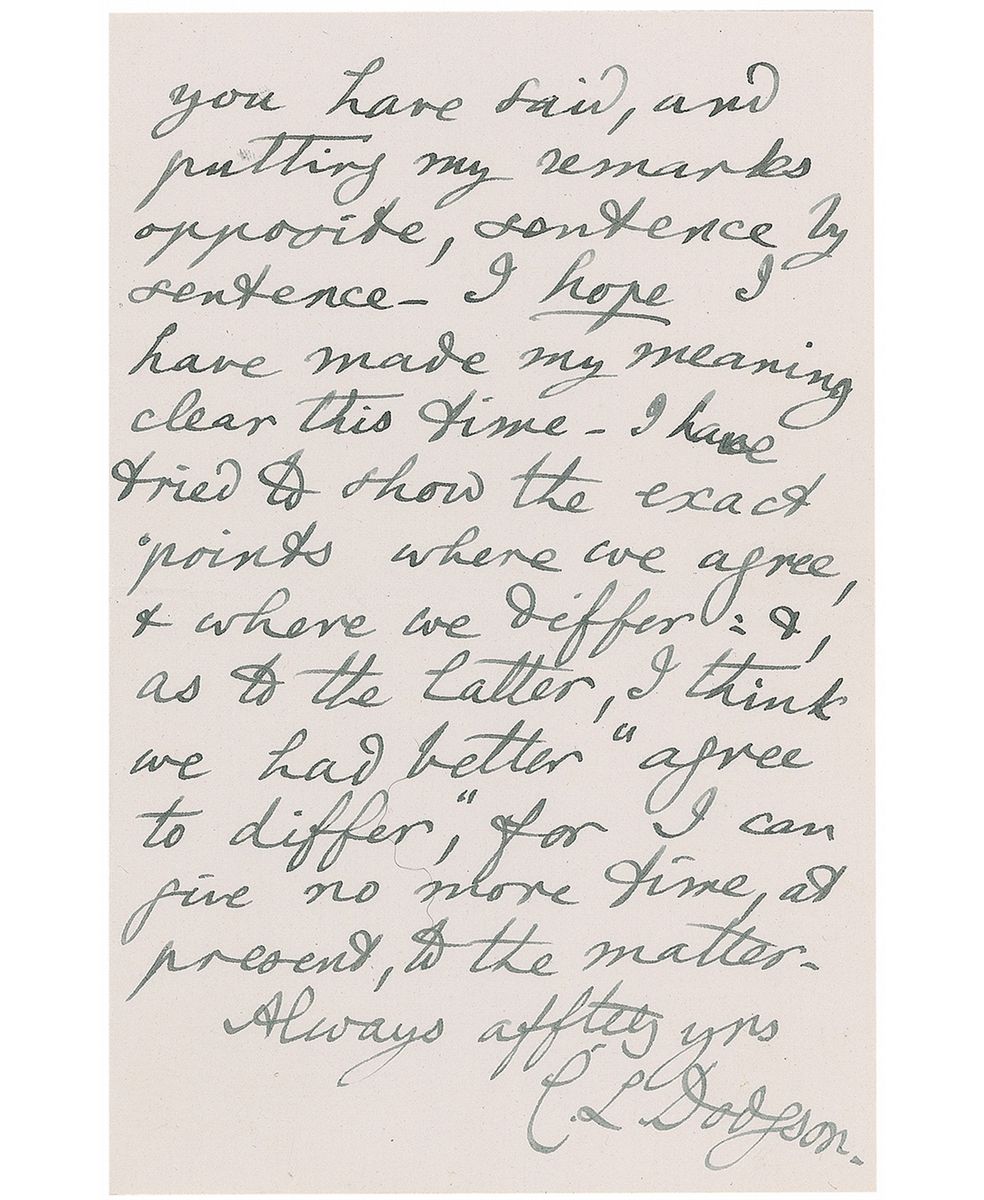 you have said, and
putting my remarks
opposite, sentence by
sentence – I hope I
have made my meaning
clear this time – I have
tried to show the exact
points where we agree,
& where we differ : &,
as to the latter, I think
we had better "agree
to differ," for I can
give no more time, at
present, to the matter –
Always afftely yrs
C. L. Dodgson.